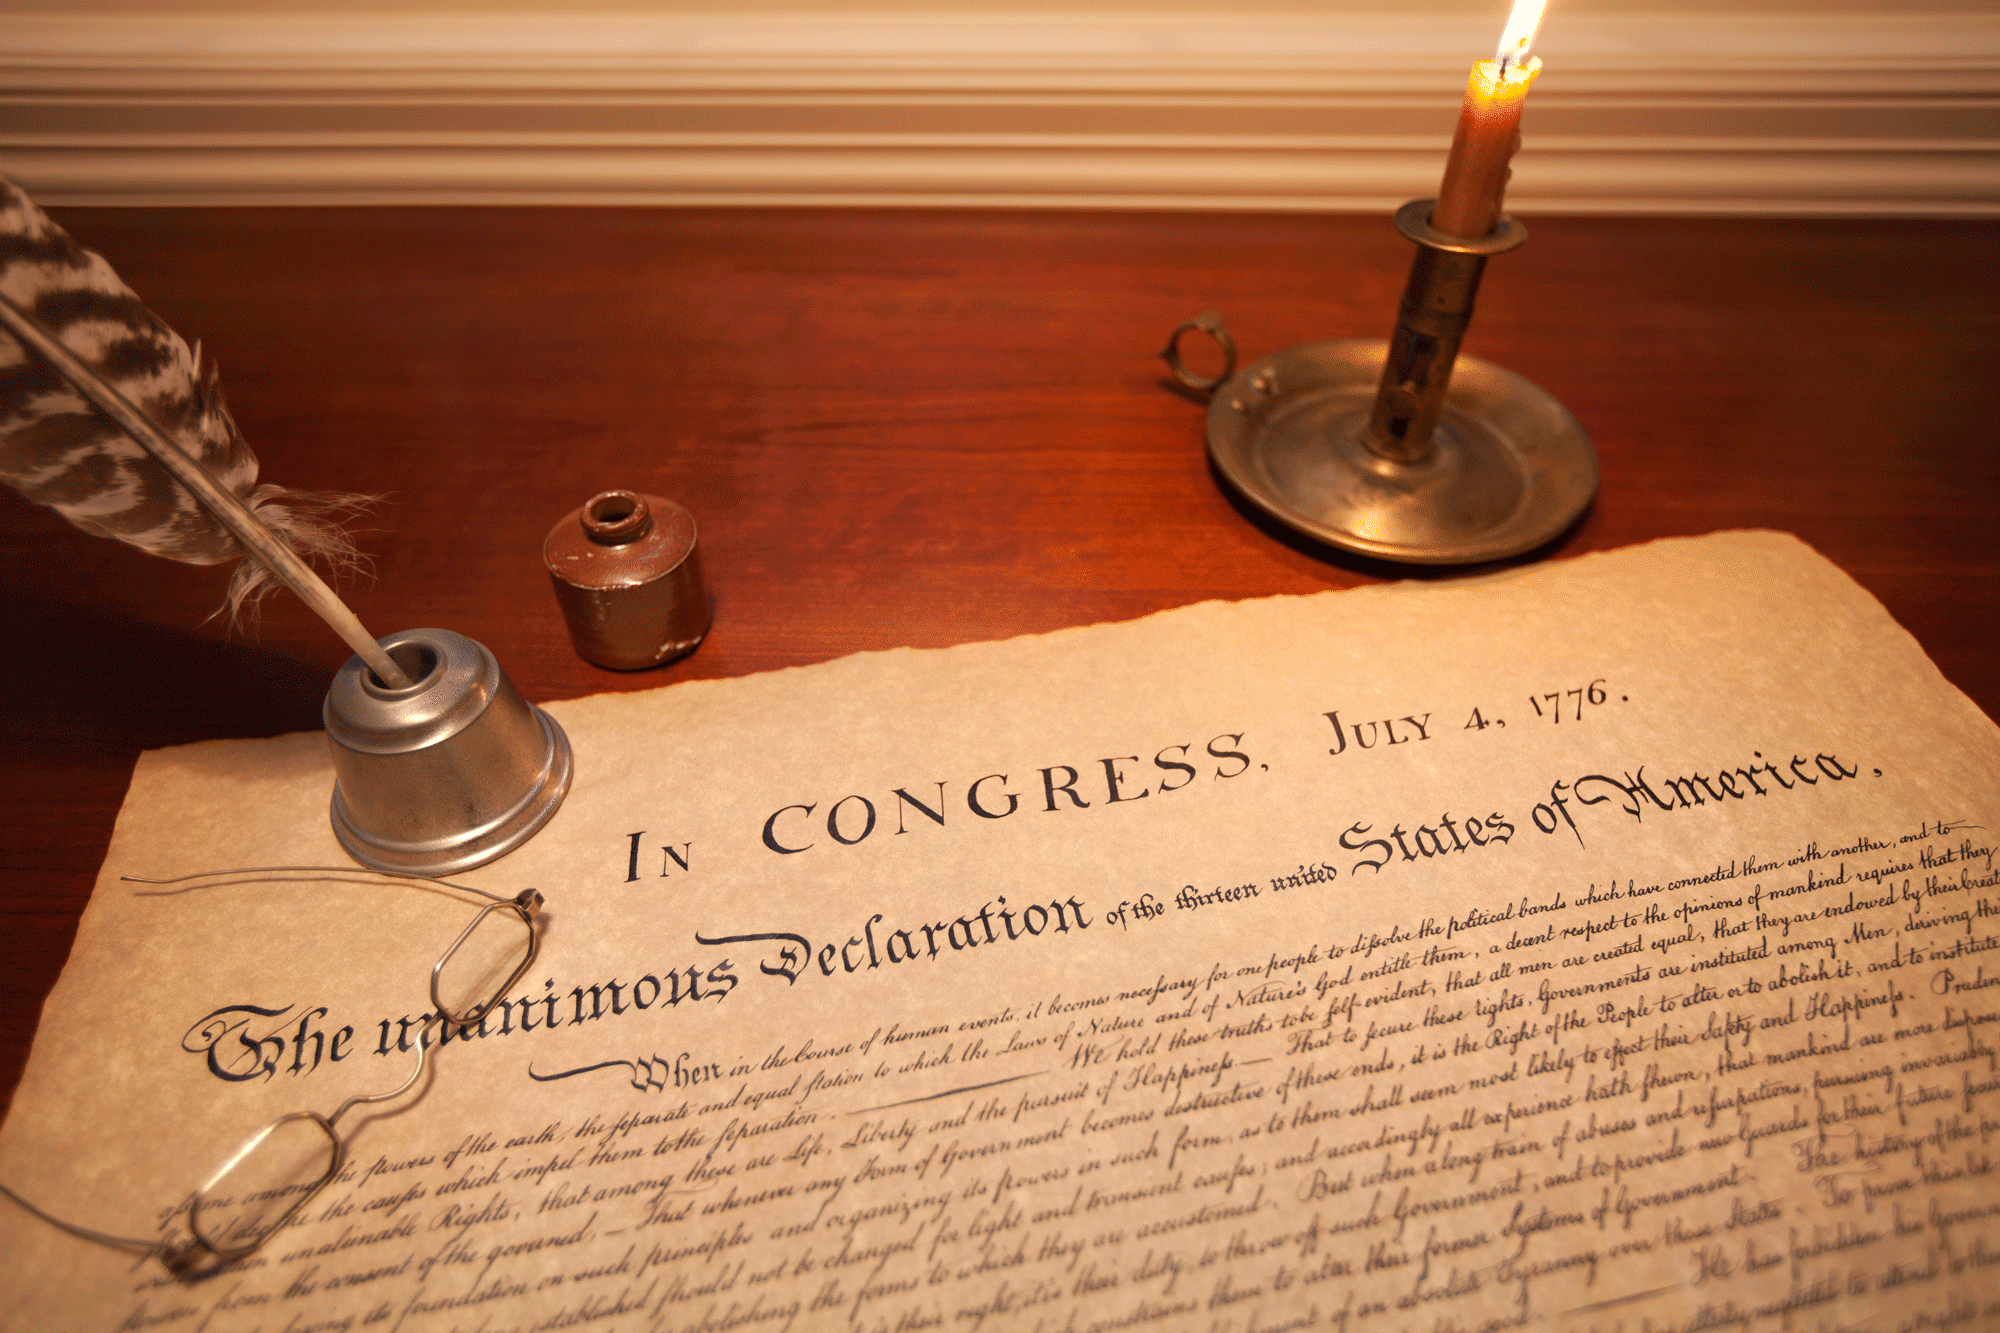 In CONGRESS, July 4, 1776.
The unanimous Declaration of the thirteen united States of America.
When in the Course of human events, it becomes necessary for one people to dissolve the political bands which have connected them with another, and to
among the powers of the earth, the separate and equal station to which the Laws of Nature and of Nature's God entitle them, a decent respect to the opinions of mankind requires that they
the causes which impel them to the separation. — We hold these truths to be self-evident, that all men are created equal, that they are endowed by their
unalienable Rights, that among these are Life, Liberty and the pursuit of Happiness. — That to secure these rights, Governments are instituted among Men, deriving
from the consent of the governed, — That whenever any Form of Government becomes destructive of these ends, it is the Right of the People to alter or to abolish it, and to institute
its foundation on such principles and organizing its powers in such form, as to them shall seem most likely to effect their Safety and Happiness.
established should not be changed for light and transient causes; and accordingly all experience hath shewn, that mankind are more
abolishing the forms to which they are accustomed. But when a long train of abuses and usurpations, pursuing invariably
is their right, it is their duty, to throw off such Government, and to provide new Guards for their future
constrains them to alter their former Systems of Government. The history of the
of an absolute Tyranny over these States. To prove this
He has forbidden his
neglected to attend to